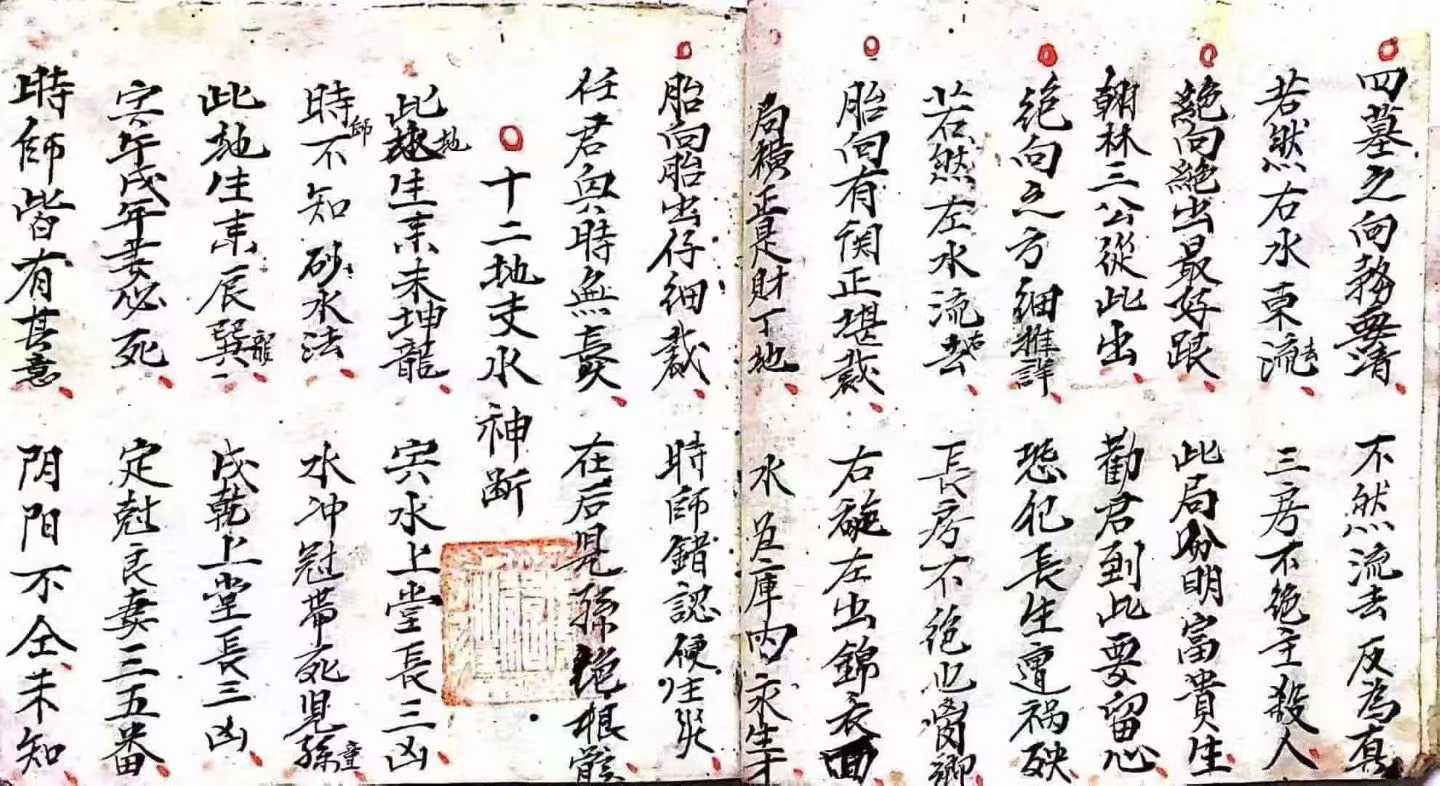 四墓之向務要清 不然流去反為真
若然右水東流去 三房不绝主殺人
絕向絕出最好跟 此局分明富貴生
翰林三公從此出 勸君到此要留心
绝向之方細推詳 恐犯長生遭祸殃
若然左水流右去 長房不绝也窗鄉
胎向有関正堪裁 右龍左出錦衣回
局横正是財丁地 水 庫内 衣生才
胎向胎出仔細裁 時師錯認便生災
任君與時無 在后児孫绝根
十二地支水神断
此地生来未坤龍 寅水上堂長三凶
時師不知砂水法 水冲冠帶死児童
此地生来辰巽龍 戌乾上堂長三凶
寅午戌年妻必死 定尅良妻三五番
時師皆有其意 阴阳不仝未知